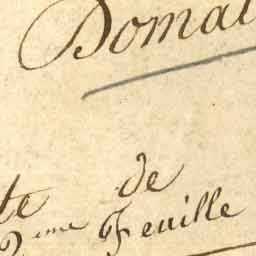 Domai
te de
2eme Feuille